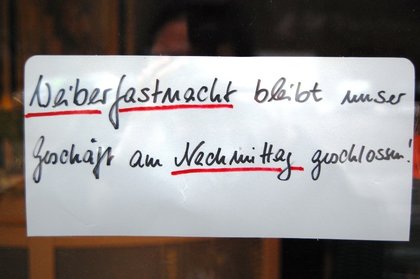 Weiberfastnacht bleibt unser
Geschäft am Nachmittag geschlossen!